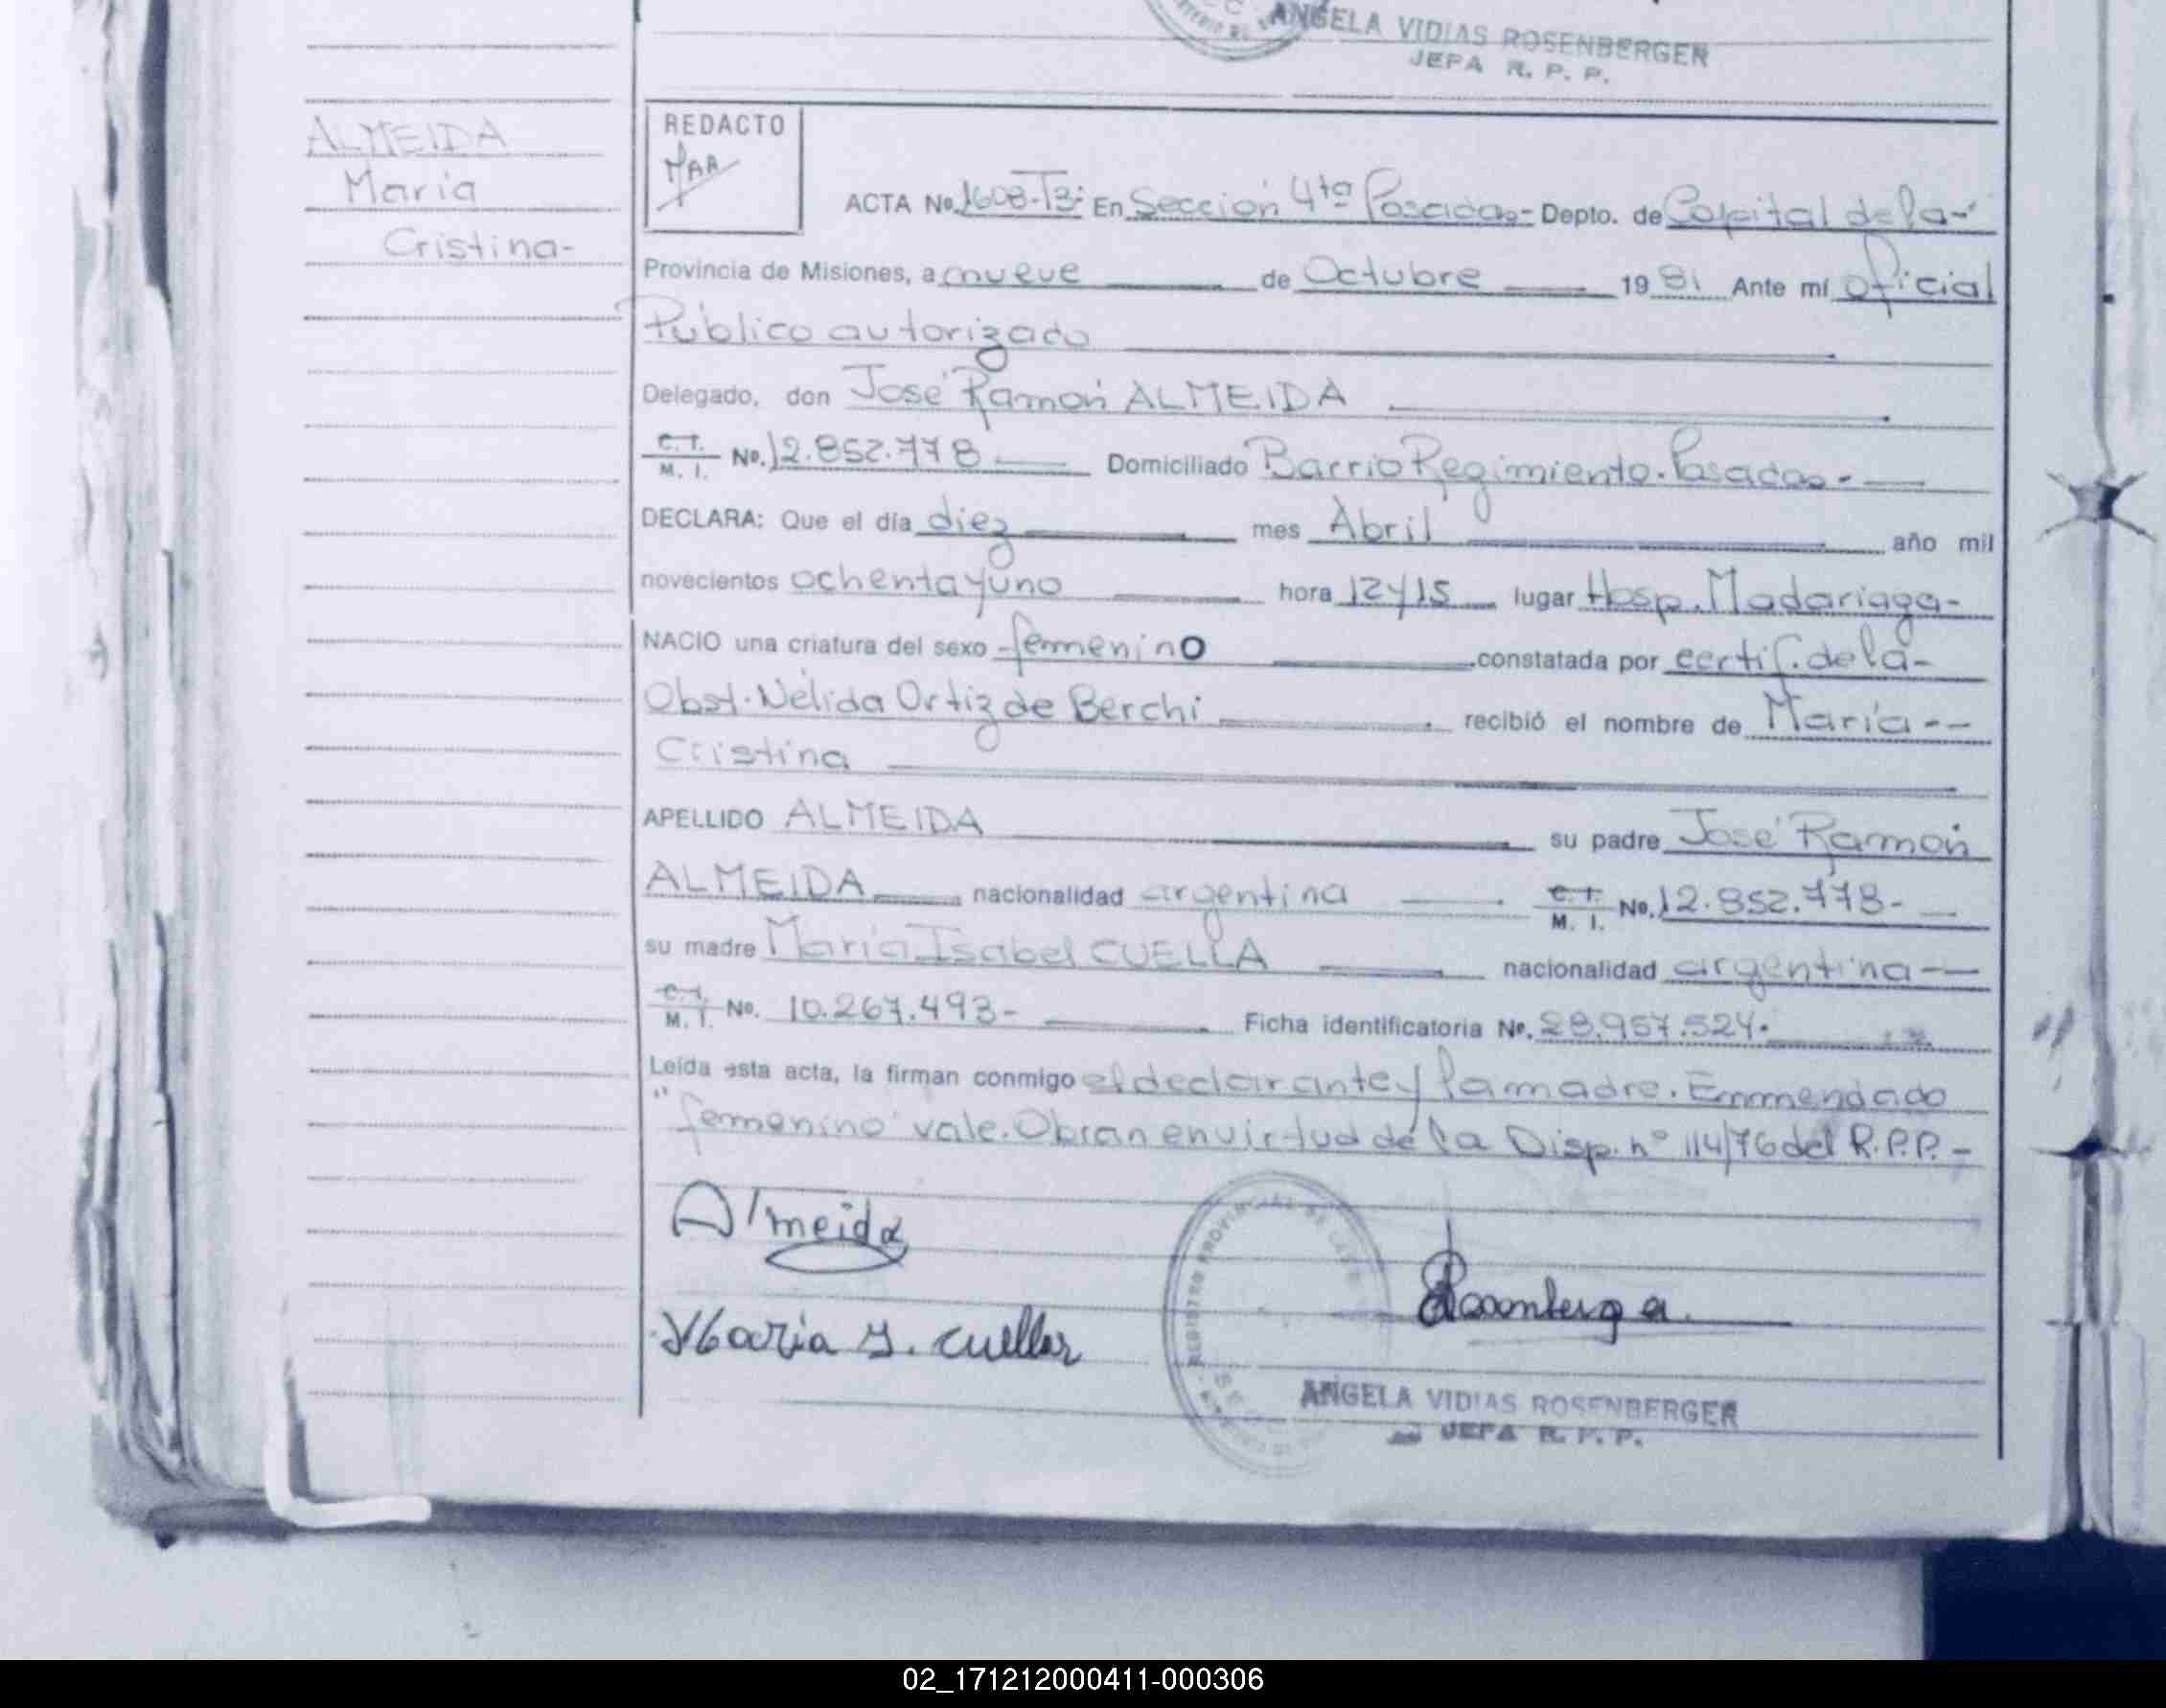 ANGELA VIDIAS ROSENBERGER
JEFA R. P. P.
ALMEIDA
María
Cristina-
REDACTO
ACTA No. 1608-T3- En Sección 4ta Posadas- Depto. de Capital de la-
Provincia de Misiones, a nueve de Octubre 1981 Ante mí Oficial
Público autorizado
Delegado, don José Ramón ALMEIDA
C.I. M. I. No. 12.852.778 Domiciliado Barrio Regimiento. Posadas-
DECLARA: Que el día diez mes Abril año mil
novecientos ochenta y uno hora 12 y 15 lugar Hosp. Madariaga-
NACIO una criatura del sexo femenino constatada por certif. de la-
Obst. Nélida Ortiz de Berchi recibió el nombre de María--
Cristina
APELLIDO ALMEIDA su padre José Ramón
ALMEIDA nacionalidad argentina C. I. M. I. No. 12.852.778-
su madre María Isabel CUELLA nacionalidad argentina--
C.I. M. I. No. 10.267.493- Ficha identificatoria No. 28.957.524.
Leída esta acta, la firman conmigo el declarante y la madre. Enmendado
"femenino" vale. Obran en virtud de la Disp. n° 114/76 del R.P.P.-
Almeida
Maria I. Cuellar
Rosenberger
REGISTRO PROVINCIAL DE LAS
ANGELA VIDIAS ROSENBERGER
JEFA R. P. P.
02_171212000411-000306